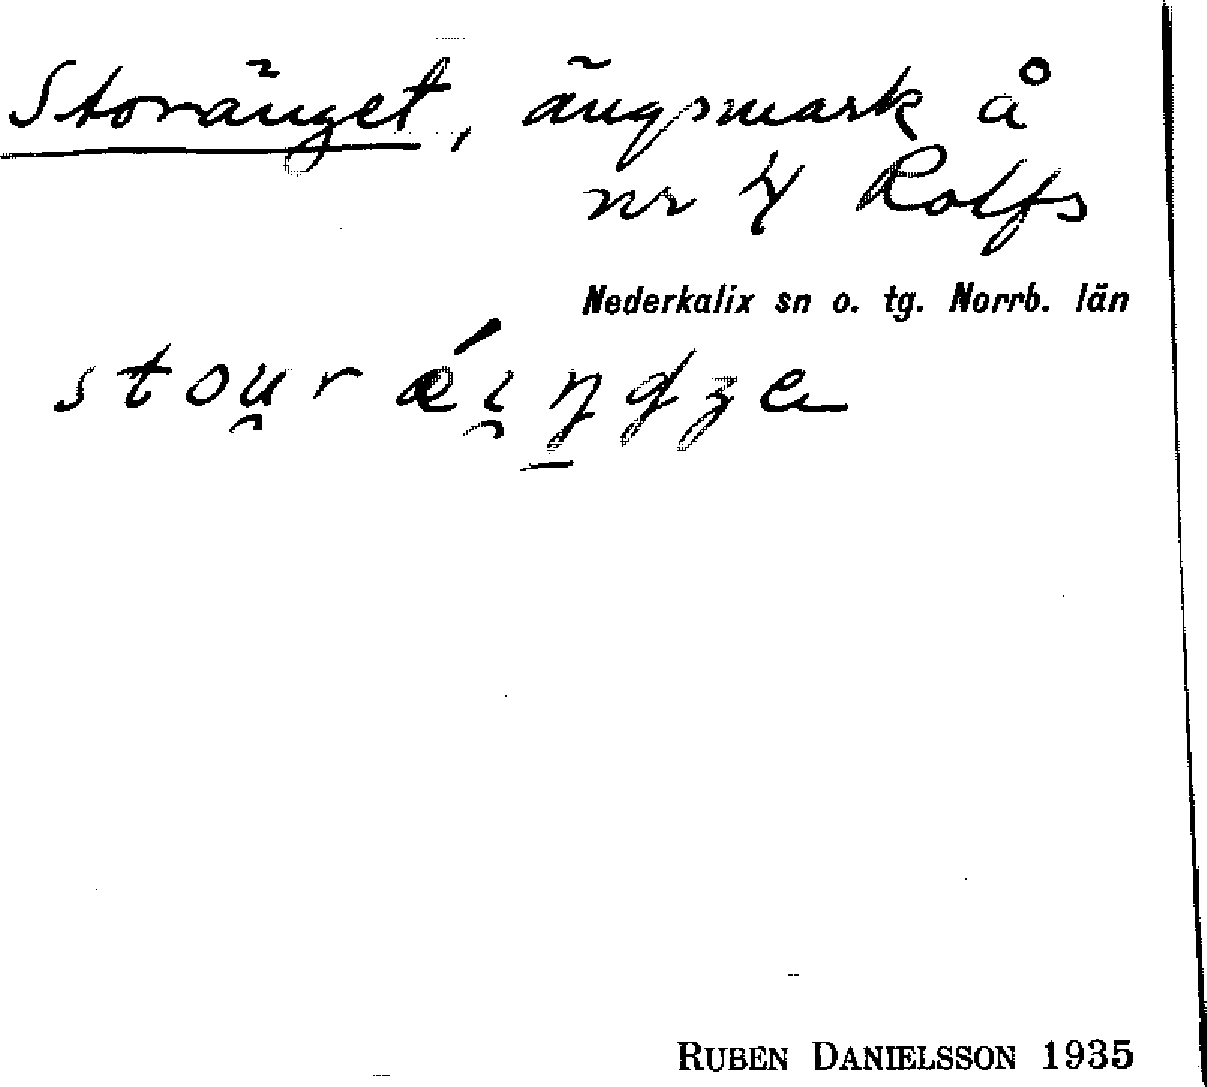 Storänget, ängsmark å
nr 4 Rolfs
Nederkalix sn o. tg. Norrb. län
stou̯rǽi̯ŋdʒa
RUBEN DANIELSSON 1935